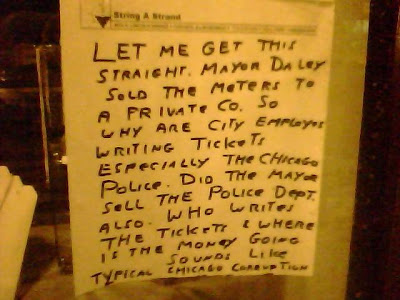 String A Strand
LET ME GET THIS
STRAIGHT. MAYOR DALEY
SOLD THE METERS TO
A PRIVATE CO. SO
WHY ARE CITY EMPLOYES
WRITING TICKETS
ESPECIALLY THE CHICAGO
POLICE. DID THE MAYOR
SELL THE POLICE DEPT.
ALSO. WHO WRITES
THE TICKETS & WHERE
IS THE MONEY GOING
SOUNDS LIKE
TYPICAL CHICAGO CORRUPTION